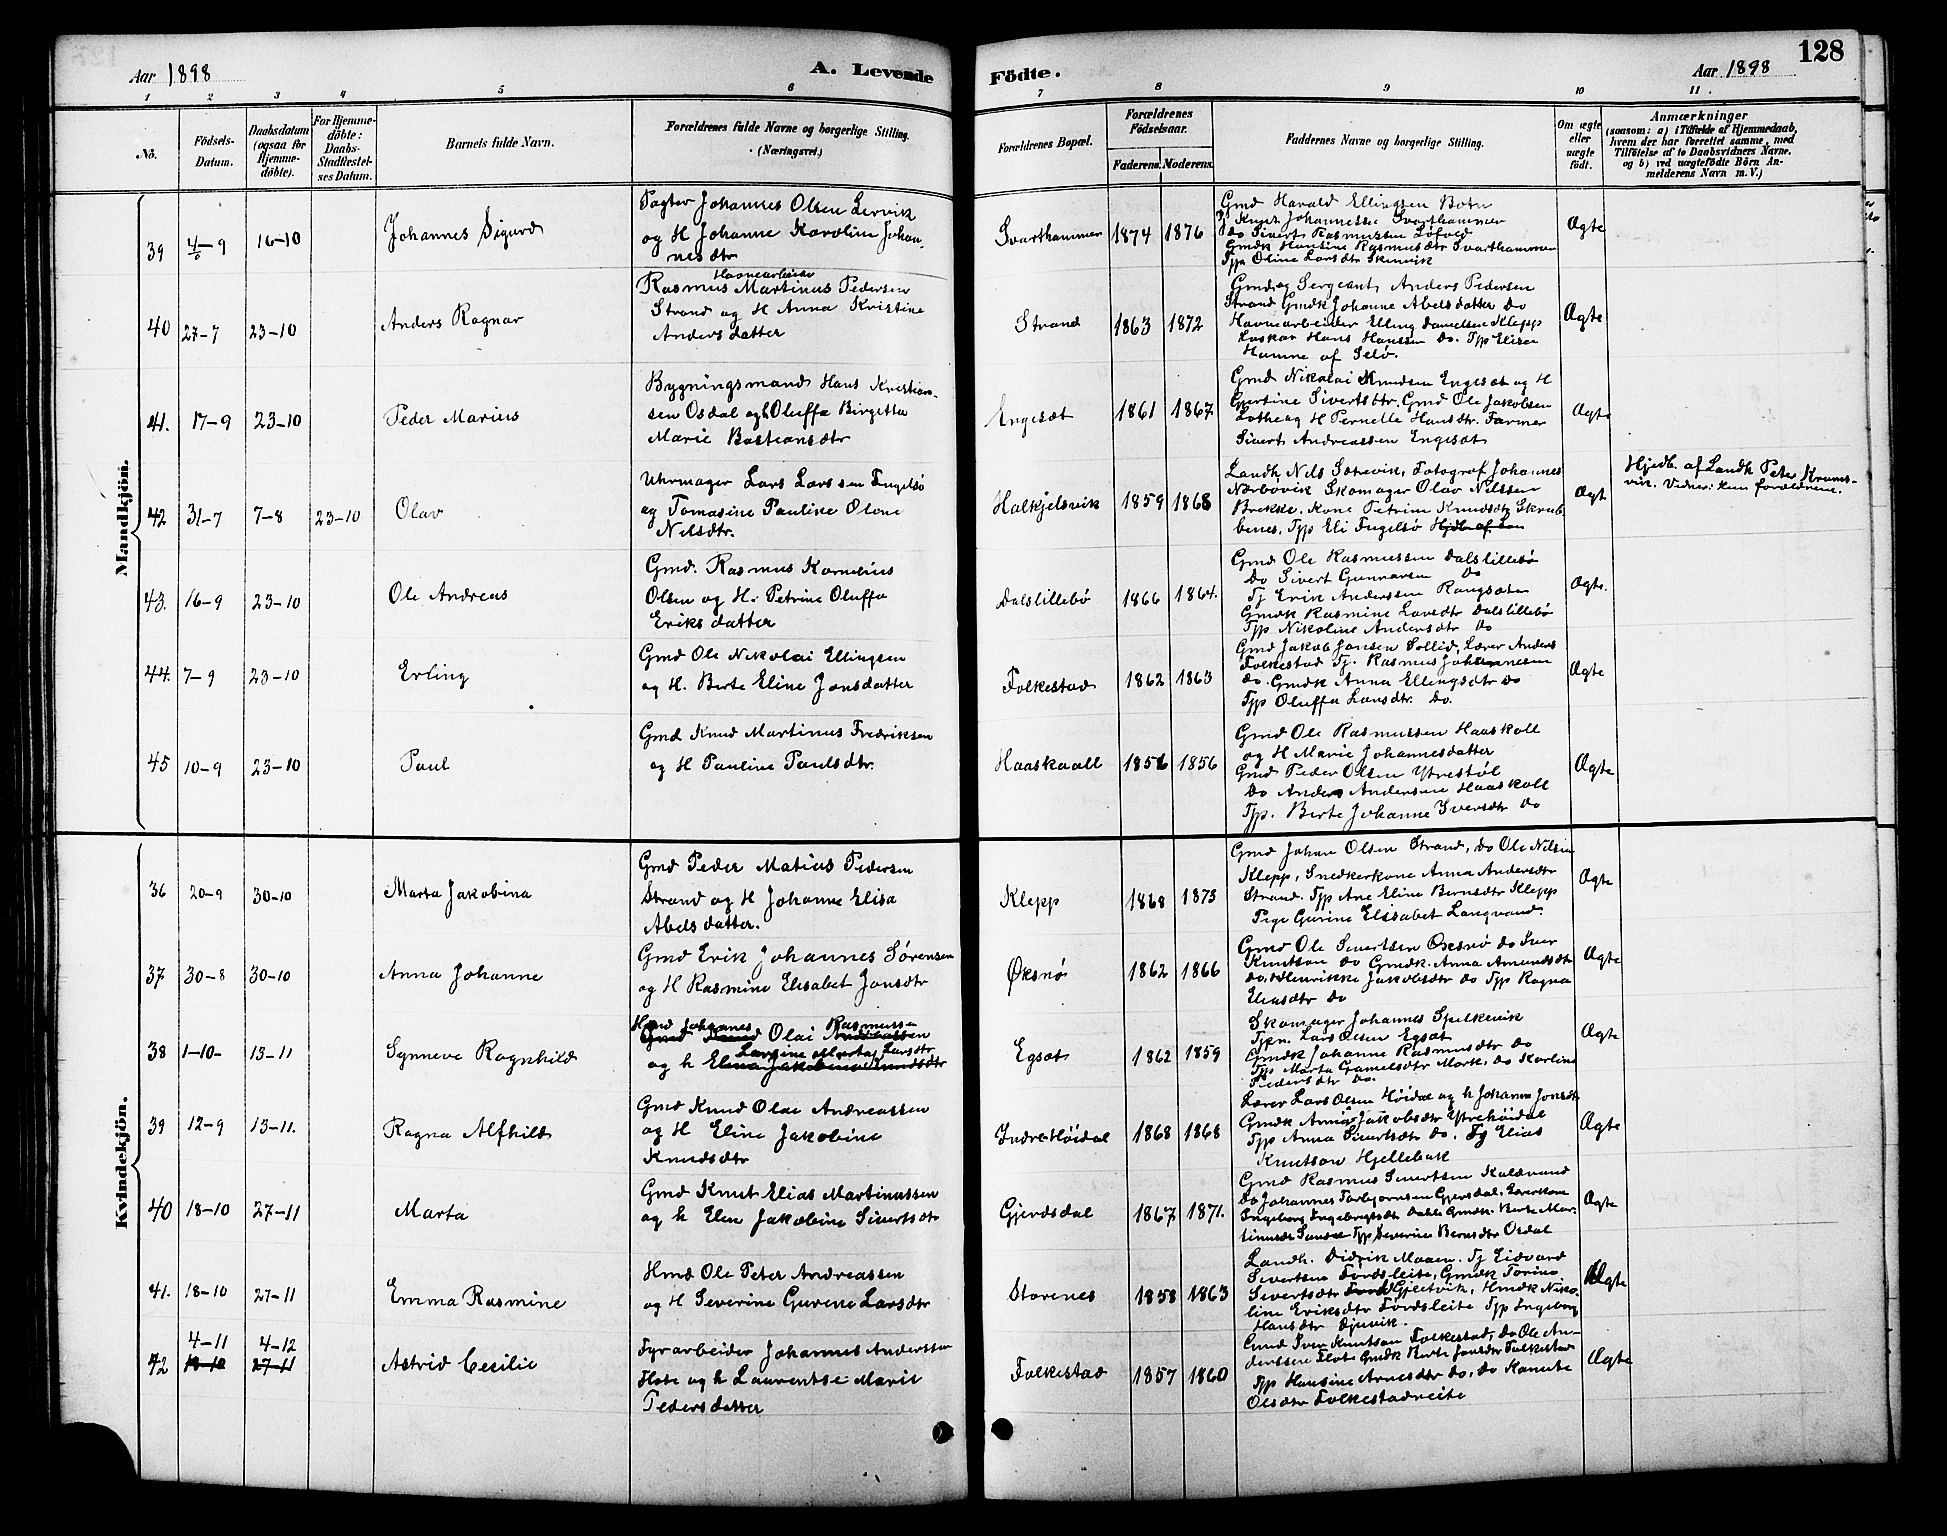 Aar 1898
A. Levende
Födte.
Aar 1898
128
1 2 3 4 5 6
7 8 9 10 11.
No.
Födsels-
Datum.
Daabsdatum
(ogsaa for
Hjemme-
döbte).
For Hjemme-
döbte:
Daabs-
Stadfæstel-
ses Datum.
Barnets fulde Navn.
Forældrenes fulde Navne og borgerlige Stilling.
(Næringsvei.)
Forældrenes Bopæl.
Forældrenes
Födselsaar.
Faderens. Moderens.
Faddernes Navne og borgerlige Stilling.
Om ægte
eller
uægte
födt.
Anmærkninger
(saasom: a) i Tilfælde af Hjemmedaab,
hvem der har forrettet samme, med
Tilföielse af to Daabsvidners Navne,
og b) ved uægtefödte Börn An-
melderens Navn m. V.)
Mandkjön.
39 4-9 16-10
Johannes Sigurd
Pagter Johannes Olsen Lervik
og H Johanne Karoline Johan-
nesdtr
Svarthammer 1874 1876
Gmd Harald Ellingsen Botn
Tj Knut Johannessen Svarthammer
do Sivert Rasmussen Löfoed
Gmdk Hansine Rasmusdtr Svarthammer
Tjp Oline Larsdtr
Ægte
40 27-7 23-10
Anders Ragnar
Havnearbeider
Rasmus Martinus Pedersen
Strand og H Anna Kristine
Andersdatter
Strand 1863 1872
Gmd og Sergeant Anders Pedersen
Strand Gmdk Johanne Abelsdatter Do
Havnearbeider Elling Danielsen Klepp
Laskar Hans Hansen Do. Tjp Elisa
Hamne af Selö.
Ægte
41. 17-9 23-10
Peder Marius
Bygningsmand Hans Kristian-
sen Osdal og h Oluffa Birgitta
Marie Bastiansdtr
Engesæt 1861 1867
Gmd Nikolai Knudsen Engesæt og H
Gjertine Sivertsdtr. Gmd Ole Jakobsen
Lothe og H Pernelle Hansdtr. Farmer
Sivert Andreassen Engesæt
Ægte
42 31-7 7-8 23-10
Olav
Uhrmager Lars Larssen Fugelsö
og Tomasine Pauline Olone
Nilsdtr.
Halkjelsvik 1859 1868
Landh Nils Sætrevik, Fotograf Johannes
Nærbövik Skomager Olav Nilssen
Brekke. Kone Petrine Knudsdtr Skrub-
benes. Tjp Eli Fugelsö Hjdb af Lan
Ægt
Hjedb. af Landh Peter Krumms-
vik. Vidner: kun forældrene.
43. 16-9 23-10
Ole Andreas
Gmd. Rasmus Kornelius
Olsen og H. Petrine Oluffa
Eriksdatter
Dalslillebö 1866 1864.
Gmd Ole Rasmussen Dalslillebö
Do Sivert Gunnarsen Do
Tj Erik Anderssen Rangsæter
Gmdk Rasmine Larsdtr Dalslillebö
Tjp Nikoline Andersdtr Do
Ægte.
44. 7-9 23-10
Erling
Gmd Ole Nikolai Ellingsen
og H. Berte Eline Jonsdatter
Folkestad 1862 1863
Gmd Jakob Jonsen Sollid, Lærer Anders
Folkestad Tj. Rasmus Johannesen
Do. Gmdk Anna Ellingsdtr Do
Tjp Oluffa Larsdtr. Do.
Ægte
45 10-9 23-10
Paul
Gmd Knud Martinus Fredriksen
og H Pauline Paulsdtr.
Haaskaall 1856 1856
Gmd Ole Rasmussen Haaskoll
og H Marie Johannesdatter
Gmd Peder Olsen Ytrestöl
Do Anders Andersen Haaskoll
Tjp. Berte Johanne Iversdtr Do
Ægte
Kvindekjön.
36 20-9 30-10
Marta Jakobina
Gmd Peder Matius Pedersen
Strand og H Johanne Elisa
Abelsdatter.
Klepp 1868 1873
Gmd Johan Olsen Strand, do Ole Nilsen
Klepp, Snedkerkone Anna Andersdtr
Strand. Tjp Ane Eline Berntsdtr Klepp
Pige Gurine Elisabet Langvand.
Ægte
37 30-8 30-10
Anna Johanne
Gmd Erik Johannes Sörensen
og H Rasmine Elisabet Jonsdtr
Öksnö 1862 1866
Gmd Ole Sivertsen Öksnö do Iver
Knutsen do Gmdk. Anna Amundsdtr
do, Henrikke Jakobsdtr do Tjp Ragna
Eliasdtr do
Ægte
38 1-10- 13-11
Synneve Ragnhild
Hmd Johannes Rasmussen
Gmd Knud Olai Andreassen
Larsine Marta Larsdtr
og h Eline Jakobine Knudsdtr
Egsæt 1862 1859
Skomager Johannes Spilkevik
Tjen. Lars Olsen Egsæt
Gmdk Johanne Rasmusdtr do
Tjp Marta Gamelsdtr Mork, do Karline
Pedersdtr Do.
Ægte
39 12-9 13-11.
Ragna Alfhild
Gmd Knud Olai Andreassen
og H Eline Jakobine
Knudsdtr
Indre-Höidal 1868 1868
Lærer Lars Olsen Höidal og h Johanne Jonsdtr
Gmdk Anna Jakobsdtr Ytrehöidal
Tjp Anna Sivertsdtr do. Tj Elias
Knutson Hjellebak
Ægte
40 18-10 27-11
Marta
Gmd Knut Elias Martinussen
og h Elen Jakobine Sivertsdtr
Gjerdsdal 1867 1871.
Gmd Rasmus Sivertsen Kaldvand
Do Johannes Torbjornsen Gjersdal, Lærerkone
Ingeborg Ingebrigtsdtr Dahle Gmdk. Berte Mar-
tinusdtr Sundal Tjp Severine Berntsdtr Osdal
Ægte
41. 18-10 27-11
Emma Rasmine
Hmd Ole Peter Andreassen
og H Severine Gurene Larsdtr
Storenes 1858 1863
Landh. Didrik Maaen. Tj Eidvard
Sivertsen Fördsleite, Gmdk Torine
Sivertsdtr Gjeitvik, Hmdk Niko-
line Eriksdtr Fördsleite Tjp Ingeborg
Hansdtr Djuvik.
Ægte
42 4-11 4-12
18-10 27-11
Astrid Cecilie
Fyrarbeider Johannes Anderssen
Hote og h Laurentse Marie
Pedersdatter
Folkestad 1857 1860
Gmd Iver Knutson Folkestad, do Ole An-
derssen Flot Gmdk Berte Jonsdtr Folkestad
Tjp Hansine Arnesdtr do, do Hanute
Olsdtr Folkestadreite
Ægte